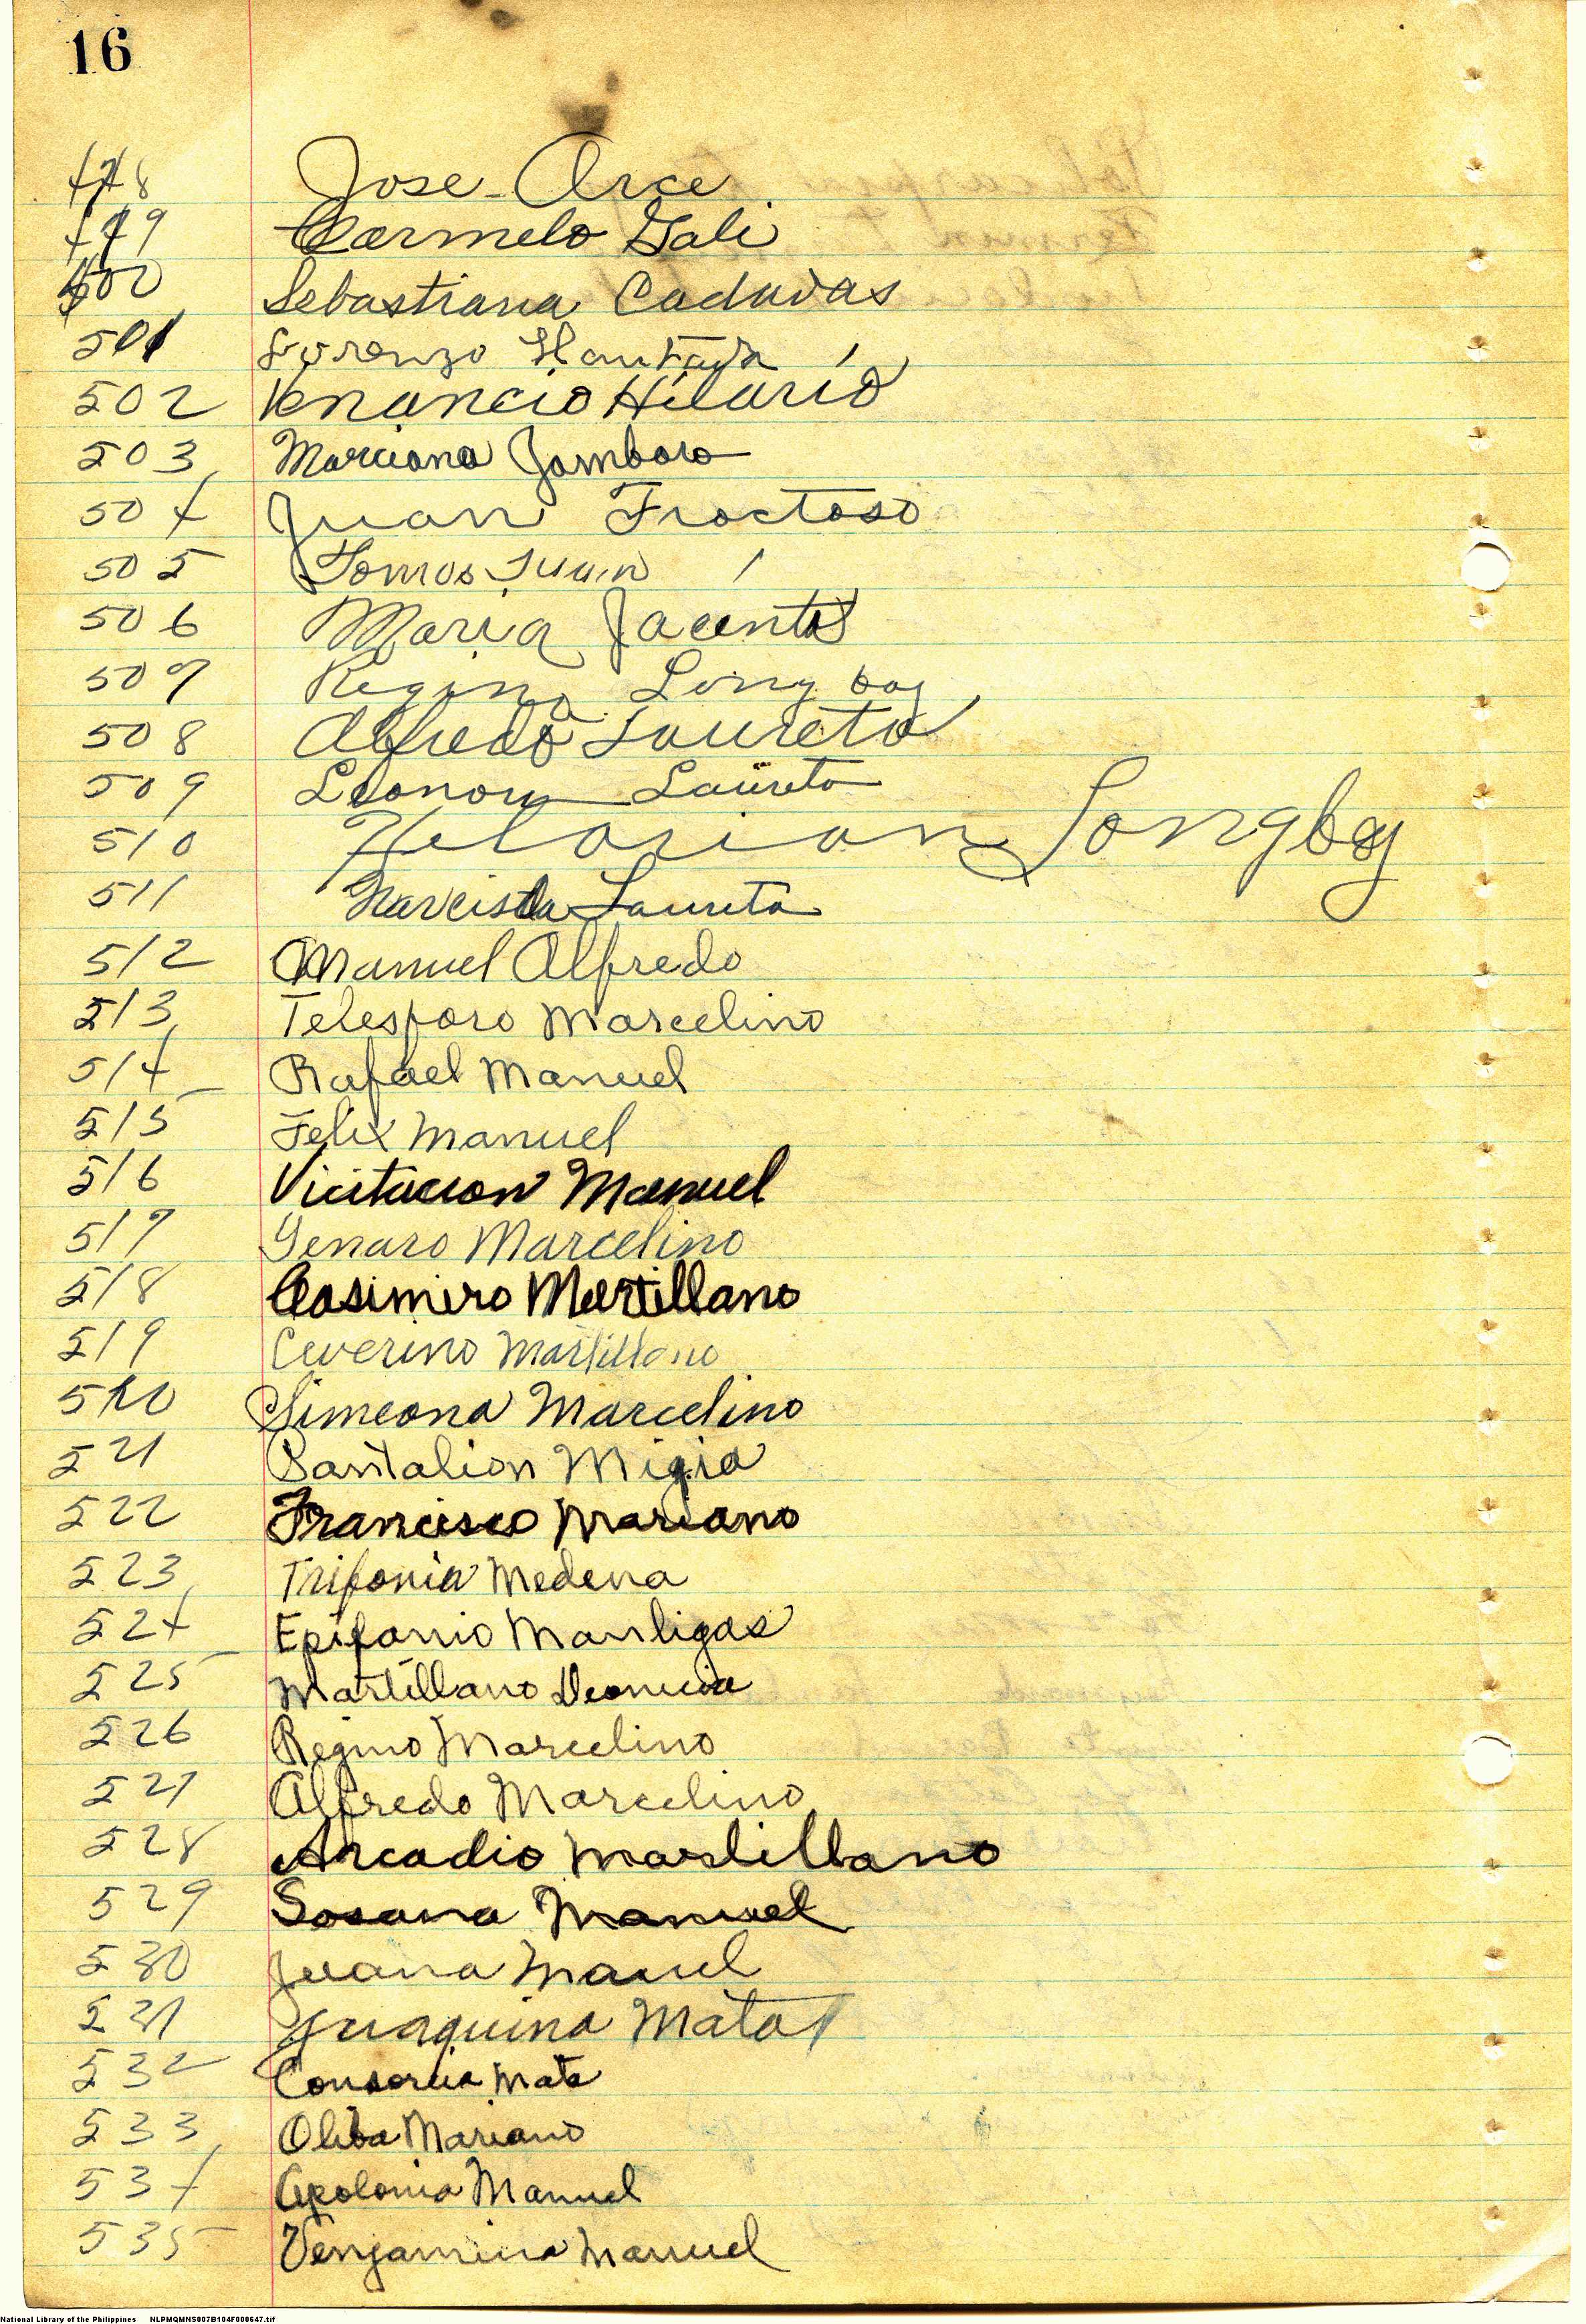 16
498 Jose Arce
499 Carmelo Gali
500 Sebastiana Caduvas
501 Lorenzo
502 Venancio Hilario
503 Marciana Jamboro
504 Juan Froctoso
505 Tomas Juan
506 Maria Jacinto
507 Regina Longboy
508 Alfredo Laureta
509 Leonora Laureta
510 Helarion Longboy
511 Narcisa Laureta
512 Manuel Alfredo
513 Telesporo Marcelino
514 Rafael Manuel
515 Felix Manuel
516 Vicitacion Manuel
517 Genaro Marcelino
518 Casimiro Martillano
519 Ceverino Martillano
520 Simeona Marcelino
521 Pantalion Migia
522 Francisco Mariano
523 Trifonia Medena
524 Epifanio Manligas
525 Martillano Deonicia
526 Regino Marcelino
527 Alfredo Marcelino
528 Arcadio Martillano
529 Sosana Manuel
530 Juana Manuel
531 Juaquina Mata
532 Consorcia Mata
533 Oliba Mariano
534 Apolonia Manuel
535 Venjamina Manuel
National Library of the Philippines NLPMQMNS007B104F000647.tif